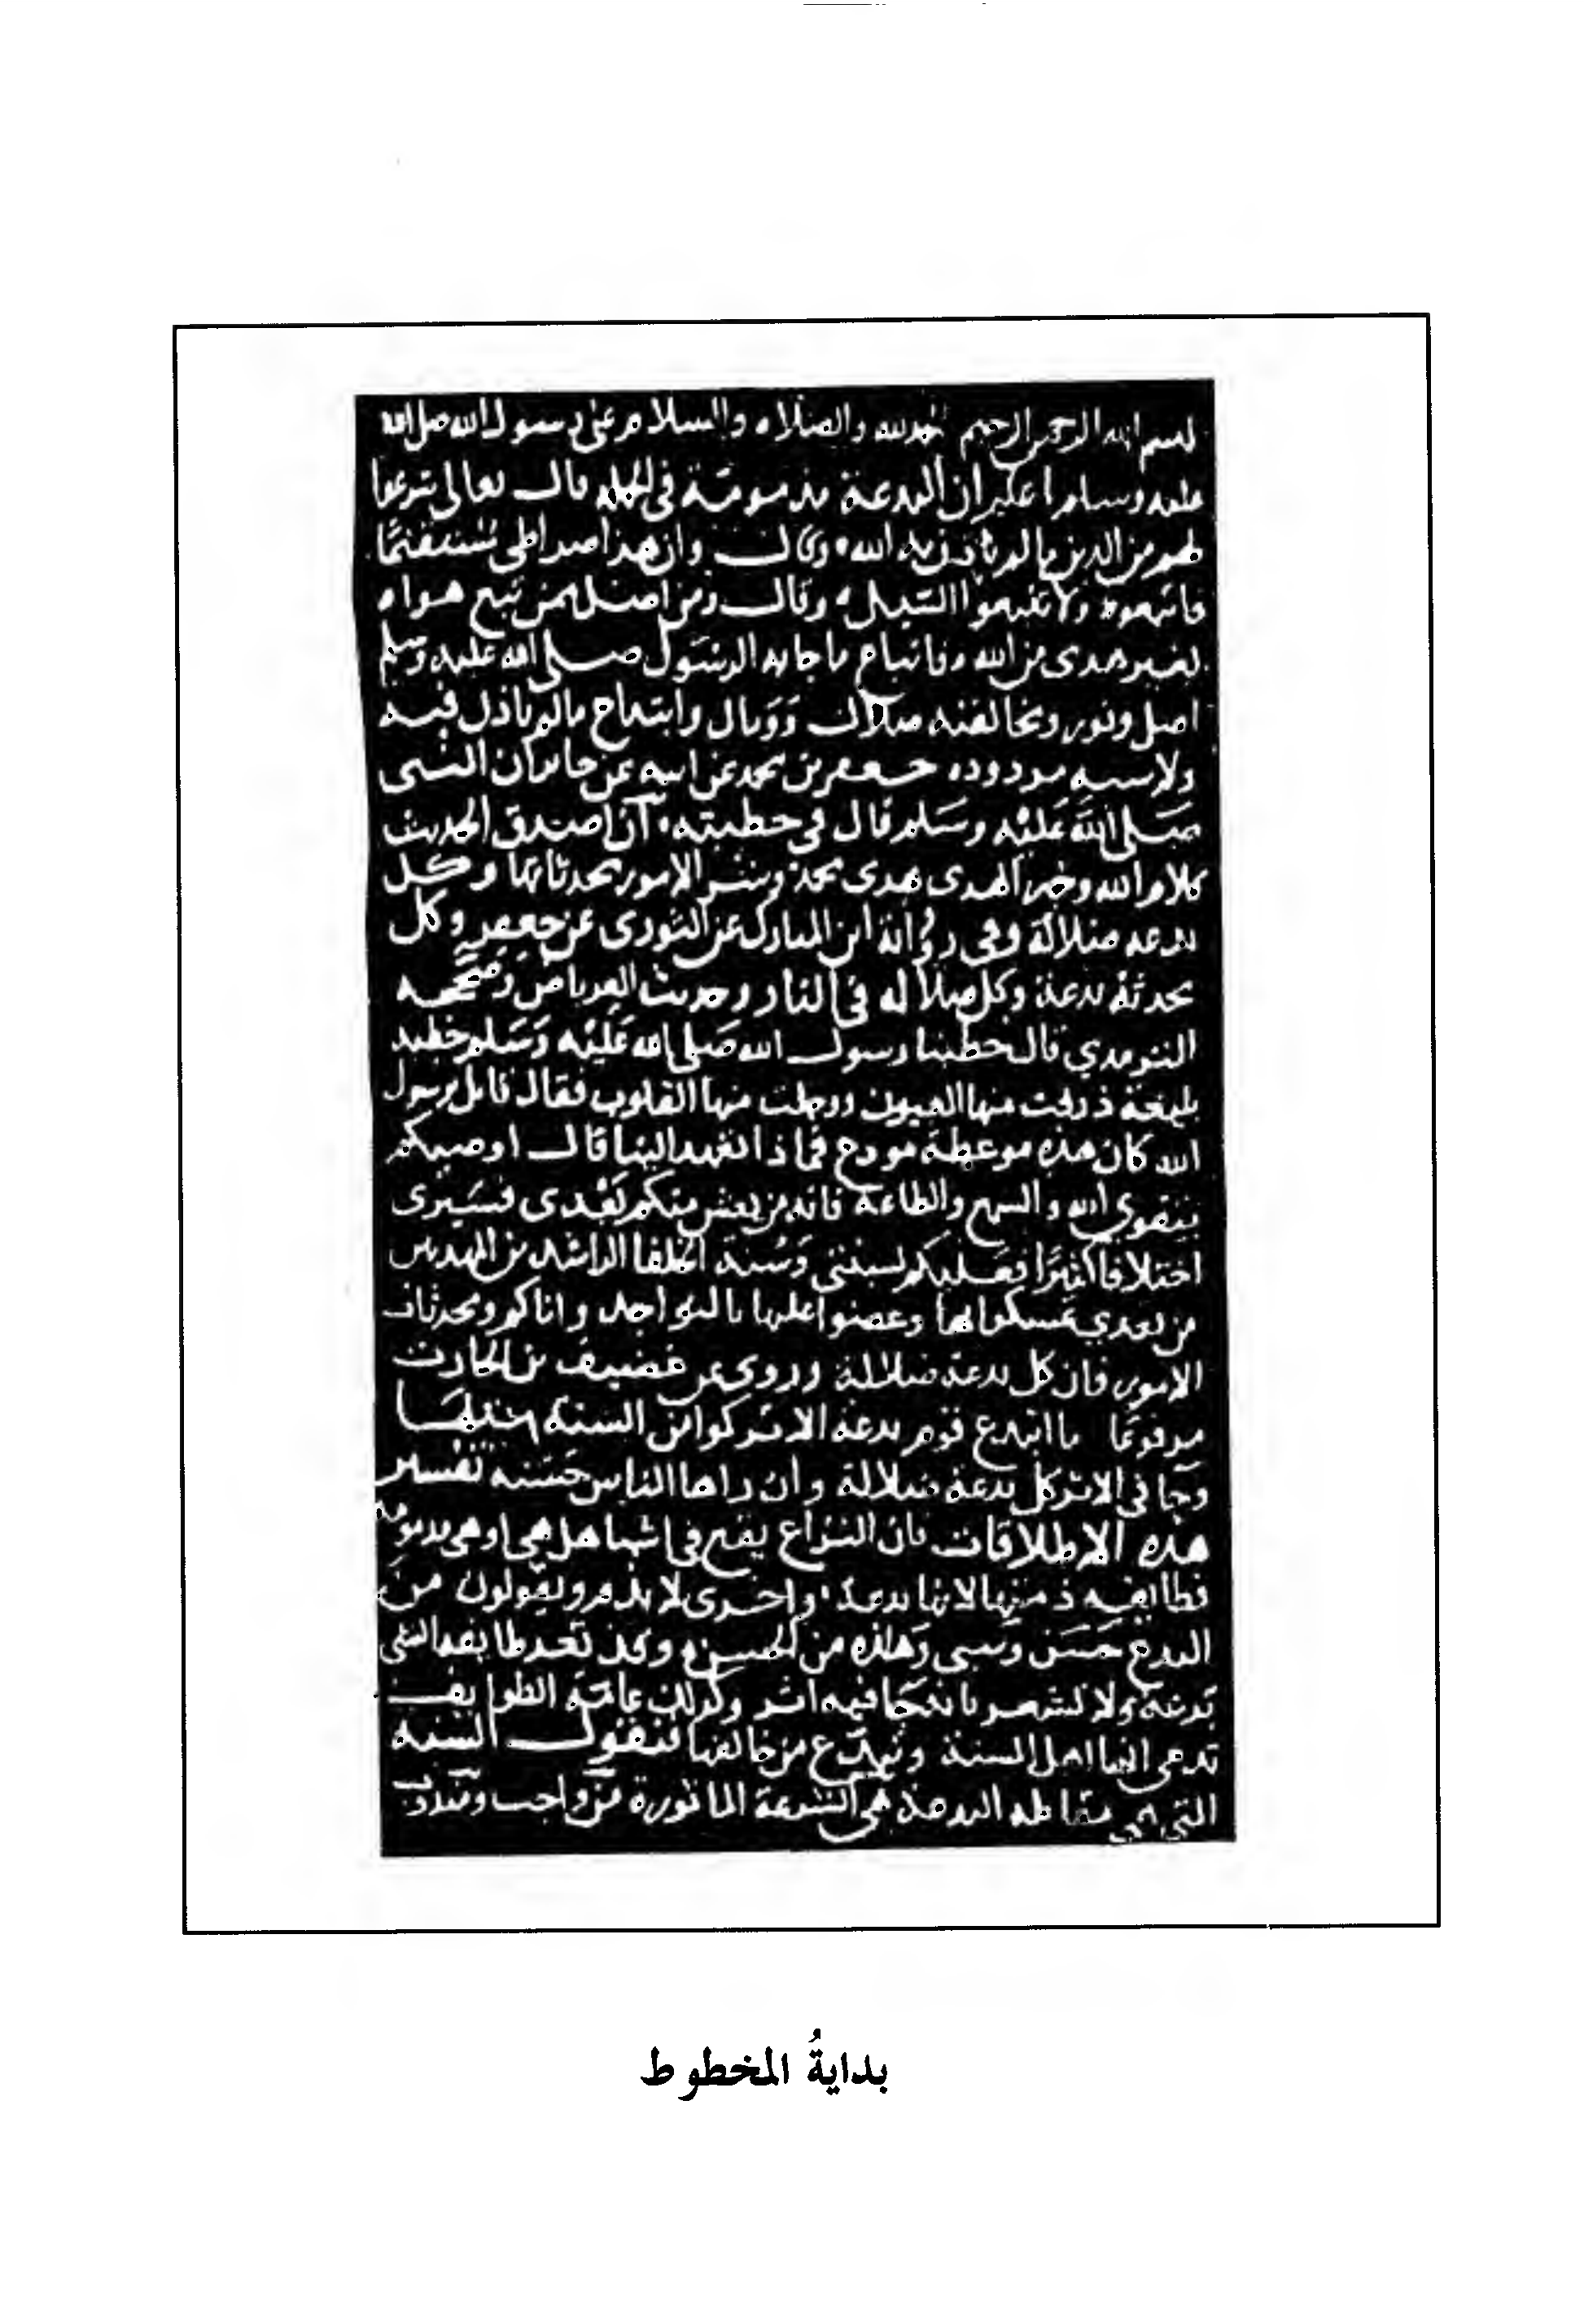 بسم الله الرحمن الرحيم الحمد لله والصلاه والسلام على رسول الله صلى الله
عليه وسلم اعلم ان البدعة مذمومة في الجملة قال تعالى شرعوا
لهم من الدين ما لم ياذن به الله وقال وان هذا صراطي مستقيما
فاتبعوه ولا تتبعوا السبل وقال ومن اضل ممن تبع هواه
بغير هدى من الله فاتباع ما جا به الرسول صلى الله عليه وسلم
اصل ونور ومخالفته ضلال ووبال وابتداع ما لم ياذن فيه
ولا سنه مردوده جعفر بن محمد عن ابيه عن جابر ان النبي
صلى الله عليه وسلم قال في خطبته ان اصدق الحديث
كلام الله وخير الهدى هدى محمد وشر الامور محدثاتها وكل
بدعه ضلالة وفي رواية ابن المبارك عن الثورى عن جعفر وكل
محدثة بدعة وكل ضلاله في النار وحديث العرباض وصححه
الترمدي قال خطبنا رسول الله صلى الله عليه وسلم خطبه
بليغة ذرفت منها العيون ووجلت منها القلوب فقال قايل يرسول
الله كان هذه موعظة مودع فماذا تعهد الينا قال اوصيكم
بتقوى الله والسمع والطاعة فانه من يعش منكم بعدى فسيرى
اختلافا كثيرا فعليكم بسنتي وسنة الخلفا الراشدين المهديين
من بعدي تمسكوا بها وعضوا عليها بالنواجد واياكم ومحدثات
الامور فان كل بدعة ضلالة وروى عن غضيف بن الحارث
مرفوعا ما ابتدع قوم بدعة الا تركوا من السنة مثليها
وجا في الاثر كل بدعة ضلالة وان راها الناس حسنه
هذه الاطلاقات فان النزاع يقع في اشيا هل هي او هي مدمومه
فطايفه ذمتها لانها بدعة واخرى لا تذم ويقولون من
البدع حسن وسيى وهذه من الحسن وقد تعد طايفه الشي
بدعة ولا تشعر بانه جا فيه اثر وكذلك عامة الطوايف
تدعى انها اهل السنة وتبدع من خالفها فنقول السنه
التي هي مقابلة البدعة هي الشرعة الماثورة من واجب ومندوب
بدايةُ المخطوط